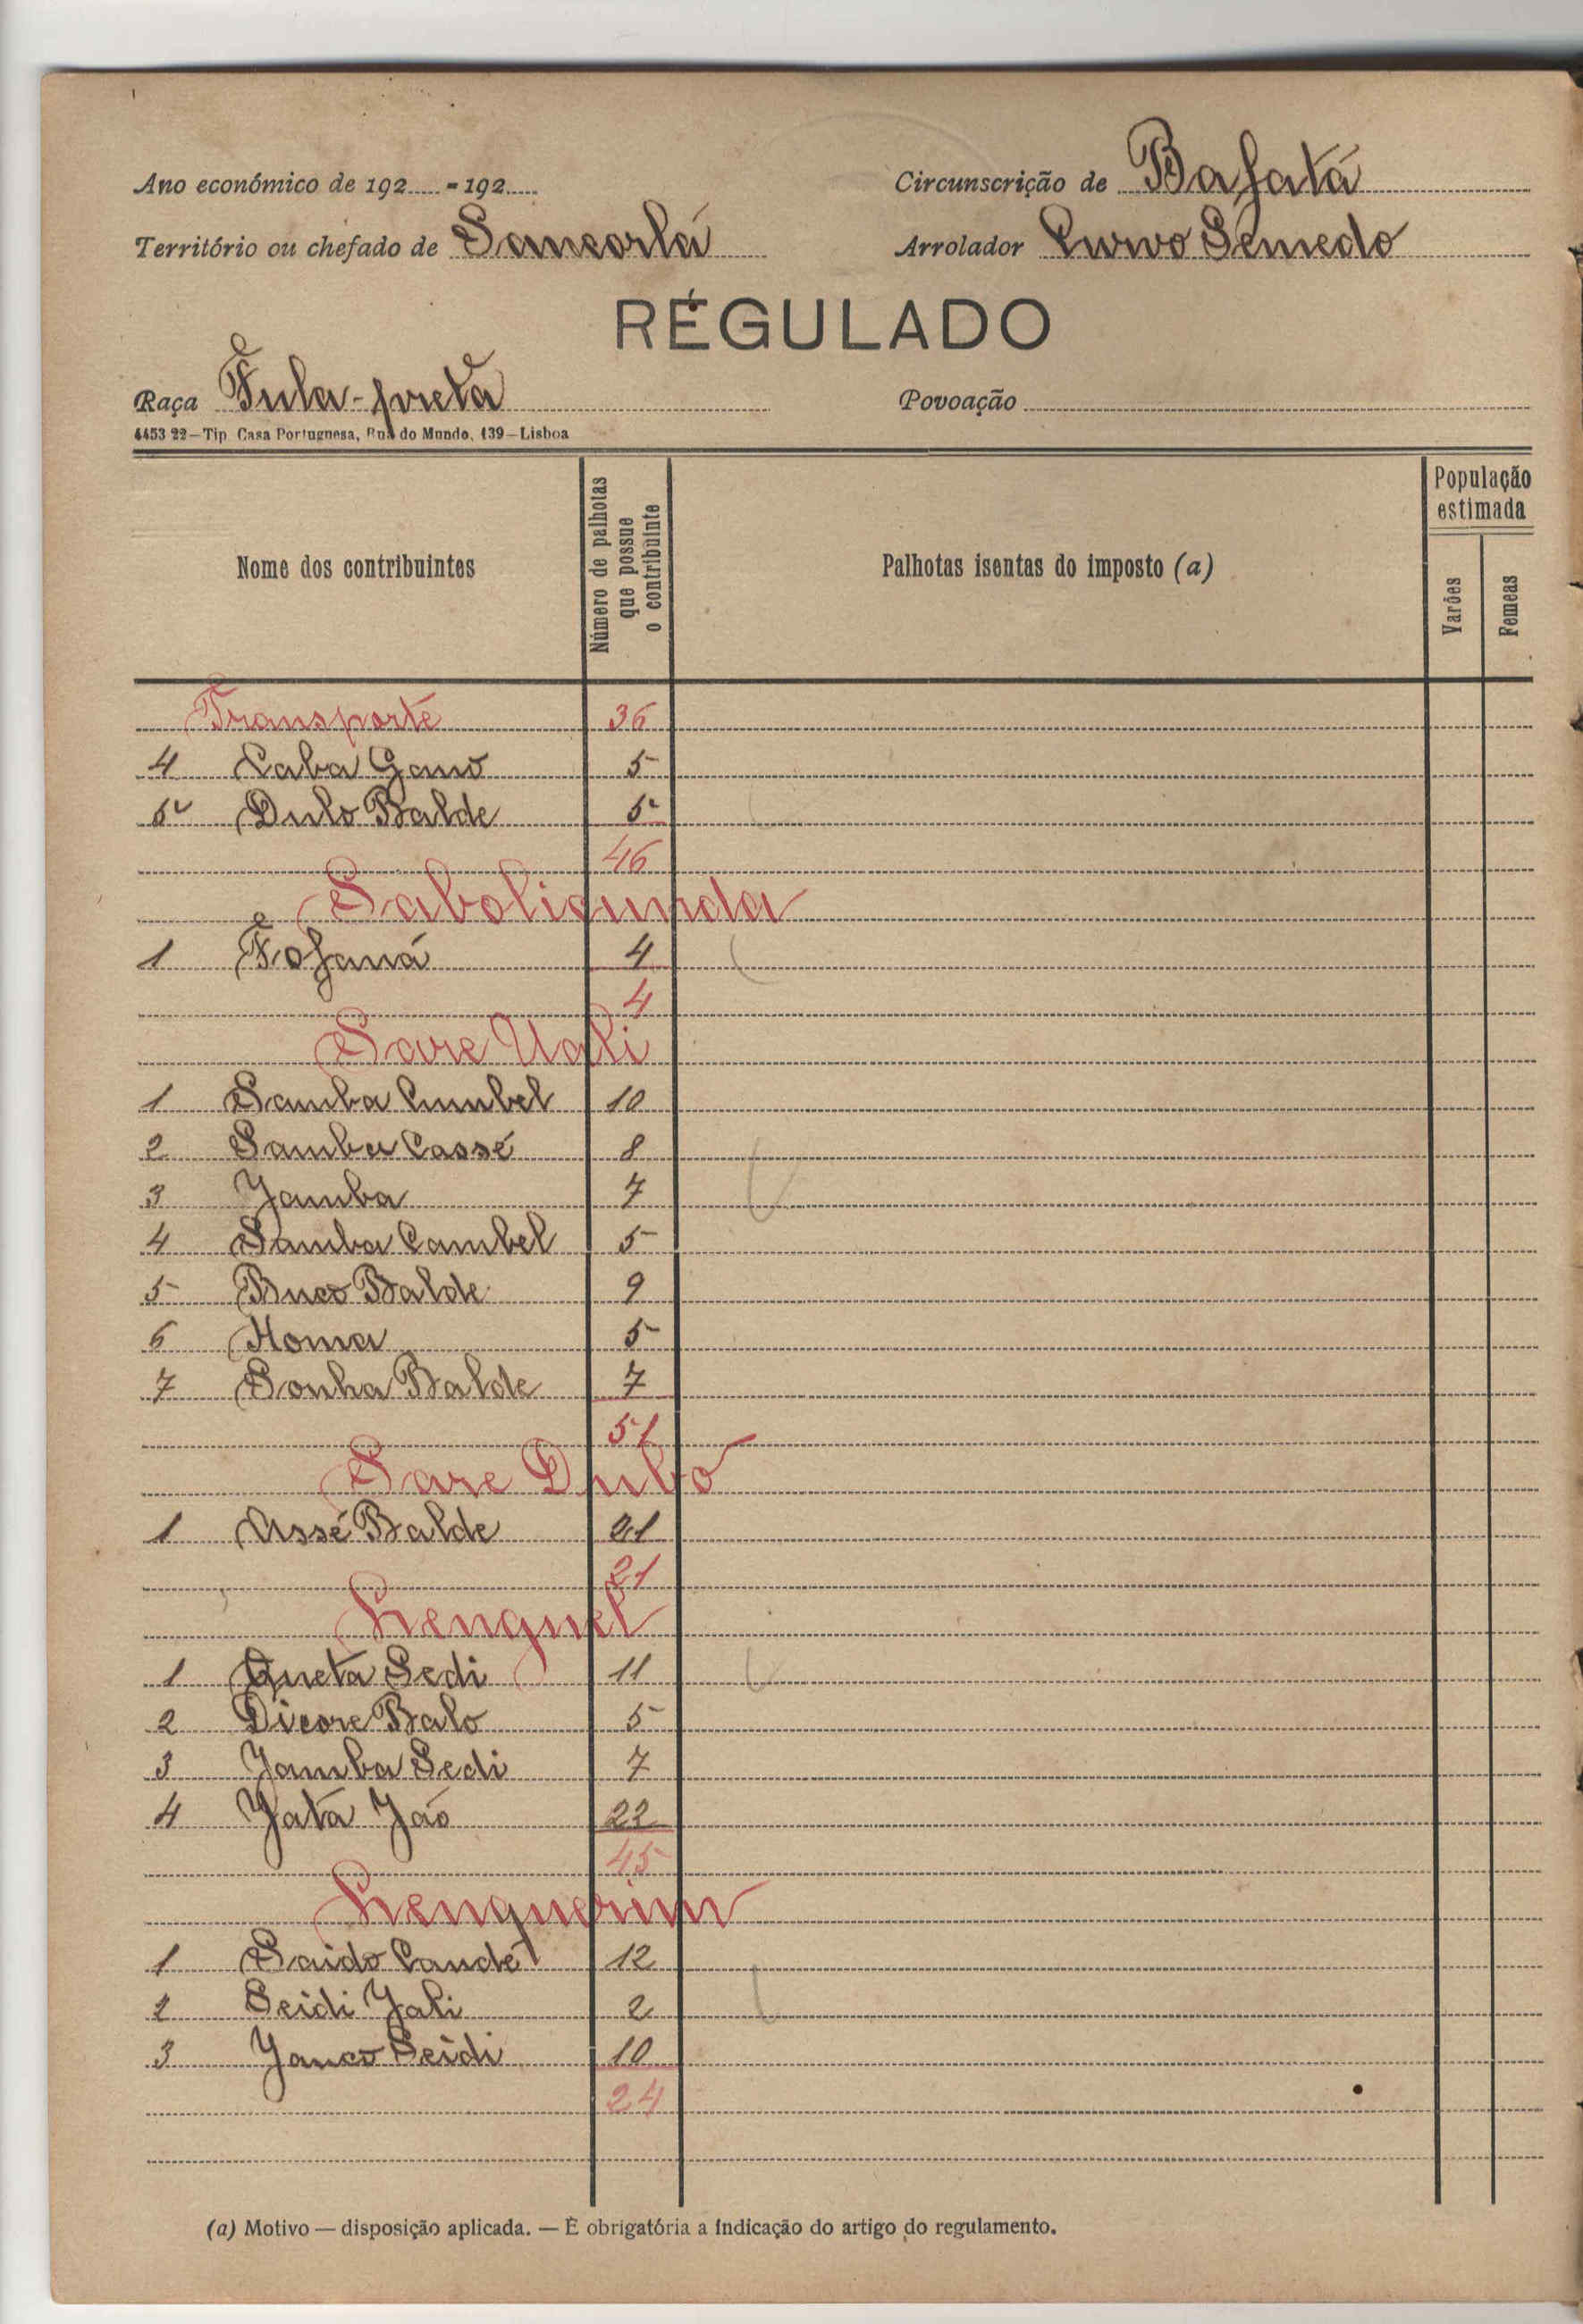 Ano económico de 192.....-192.....
Circunscrição de Bafatá
Território ou chefado de Sancorlá
Arrolador Curvo Semedo
RÉGULADO
Raça Fula-preta
Povoação
4453 22—Tip Casa Portuguesa, Rua do Mundo, 139—Lisboa
Nome dos contribuintes
Número de palhotas que possue o contribuinte
Palhotas isentas do imposto (a)
População estimada
Varões
Femeas
Transporte 36
4 Caba Ganó 5
5 Dulo Balde 5
46
Saboliçunda
1 Fofaná 4
4
Sare Uali
1 Samba Cumbel 10
2 Samba Cassé 8
3 Jamba 7
4 Samba Cambel 5
5 Buco Balde 9
6 Homa 5
7 Sonha Balde 7
51
Sare Dubo
1 Assé Balde 21
21
Lenguel
1 Queta Sedi 11
2 Dicore Balo 5
3 Jamba Sedi 7
4 Jatá Jaó 22
45
Lenguerim
1 Saido Candé 12
2 Seidi Jali 2
3 Janco Seidi 10
24
(a) Motivo — disposição aplicada. — É obrigatória a indicação do artigo do regulamento.